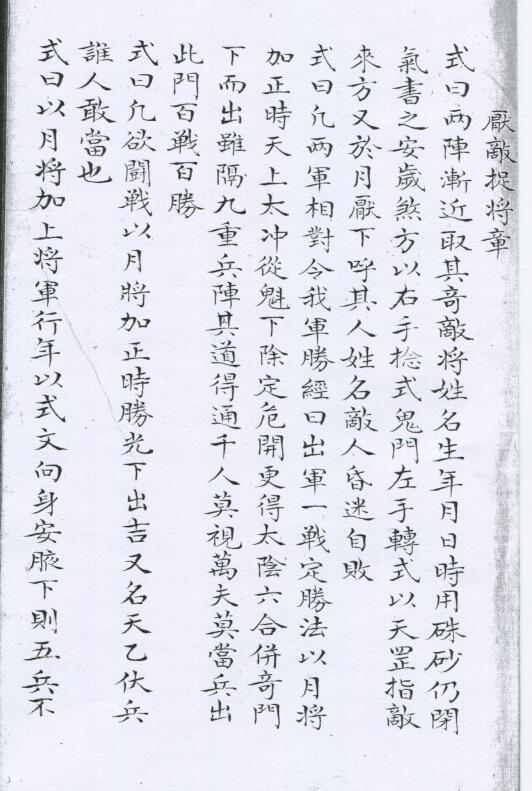 厭敵捉將章
式曰两陣漸近取其竒敵将姓名生年月日時用硃砂仍閉
氣書之安歲煞方以右手捻式鬼門左手轉式以天罡指敵
來方又於月厭下呼其人姓名敵人昏迷自敗
式曰凢两軍相對令我軍勝經曰出軍一戦定勝法以月将
加正時天上太冲從魁下除定危開更得太陰六合併竒門
下而出雖隔九重兵陣其道得通千人莫視萬夫莫當兵出
此門百戦百勝
式曰凢欲闘戦以月將加正時勝光下出吉又名天乙伏兵
誰人敢當也
式曰以月将加上将軍行年以式文向身安腋下則五兵不